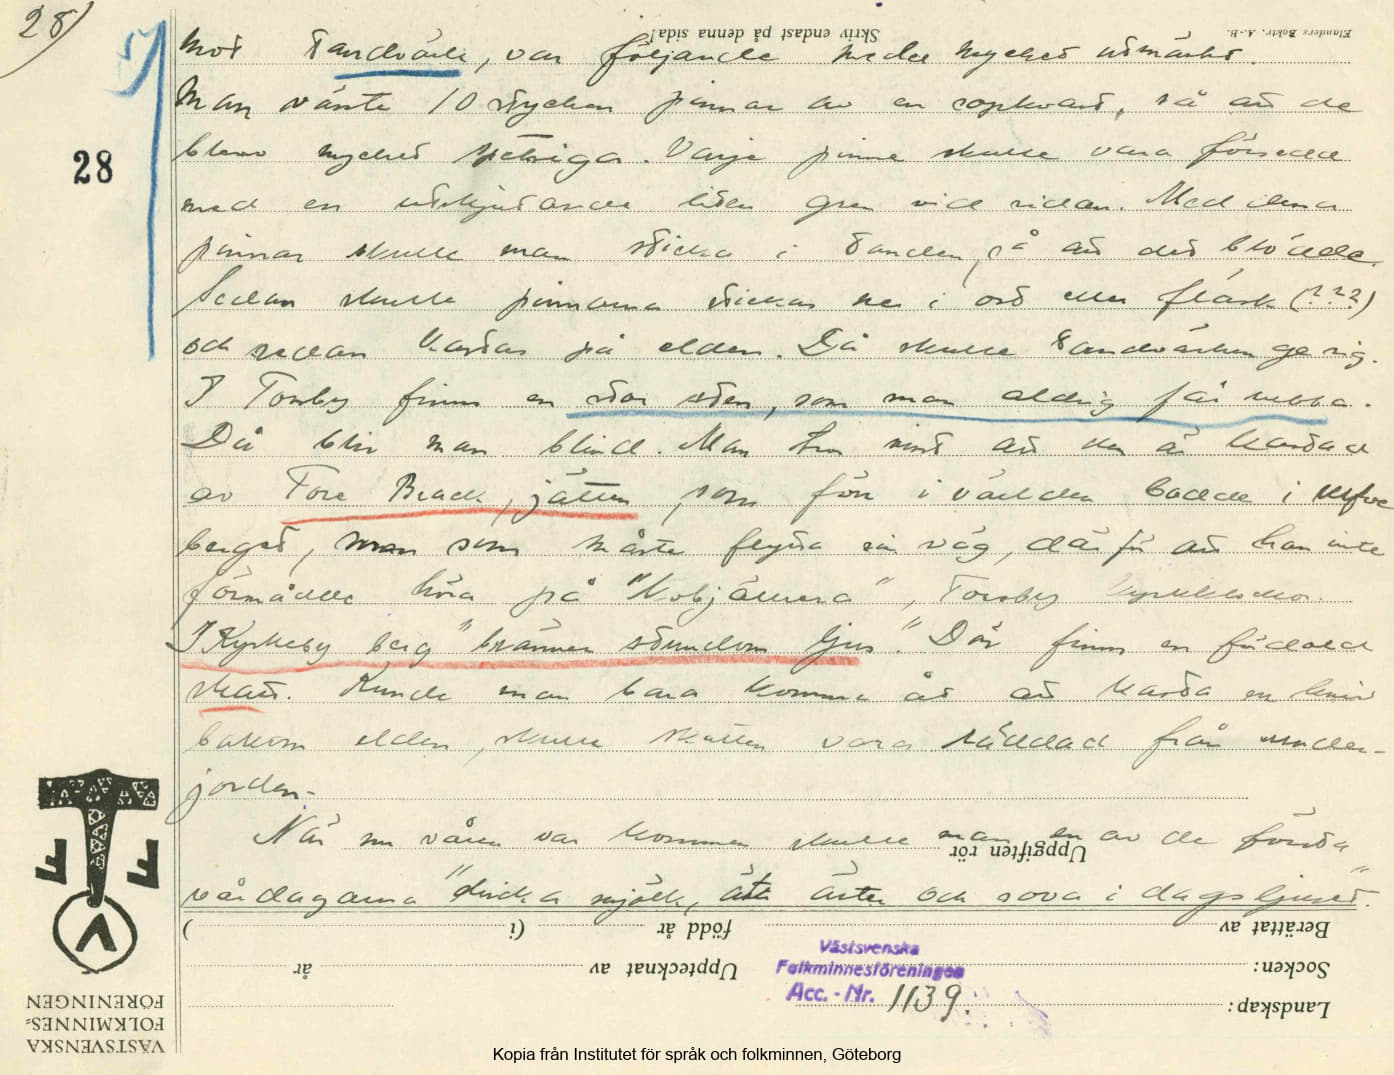 28)
Skriv endast på denna sida!
Elanders Boktr. A.-B.
mot tandvärk, var följande medel mycket utmärkt.
Man växte 10 stycken pinnar av en sopkvast, så att de
blevo mycket spetsiga. Varje pinne skulle vara försedd
28
med en utskjutande liten gren vid sidan. Med dessa
pinnar skulle man sticka i tanden, så att det blödde.
Sedan skulle pinnarna stickas ner i ost eller fläsk (???)
och sedan kastas på elden. Då skulle tandvärken ge sig.
I Torsby finns en stor sten, som man aldrig får rubba.
Då blir man blind. Man tror visst att den är kastad
av Tore Brack, jätten, som förr i världen bodde i
berget, men som måste flytta sin väg, därför att han inte
förmådde höra på "Kobjällera", Torsby kyrkklockor.
I Kyrkeby berg "bränner stundom ljus". Där finns en fördold
skatt. Kunde man bara komma åt att kasta en kniv
bakom elden, skulle skatten vara räddad från under-
jorden.-
När nu våren var kommen skulle man en av de första
Uppgiften rör
vårdagarna "dricka mjölk, äta ärter och sova i dagsljuset".
Berättat av
född år
(i
)
Västsvenska
Folkminnesföreningen
Acc. - Nr. 1139.
Socken:
Upptecknat av
år
Landskap:
VÄSTSVENSKA
FOLKMINNES=
FÖRENINGEN
Kopia från Institutet för språk och folkminnen, Göteborg